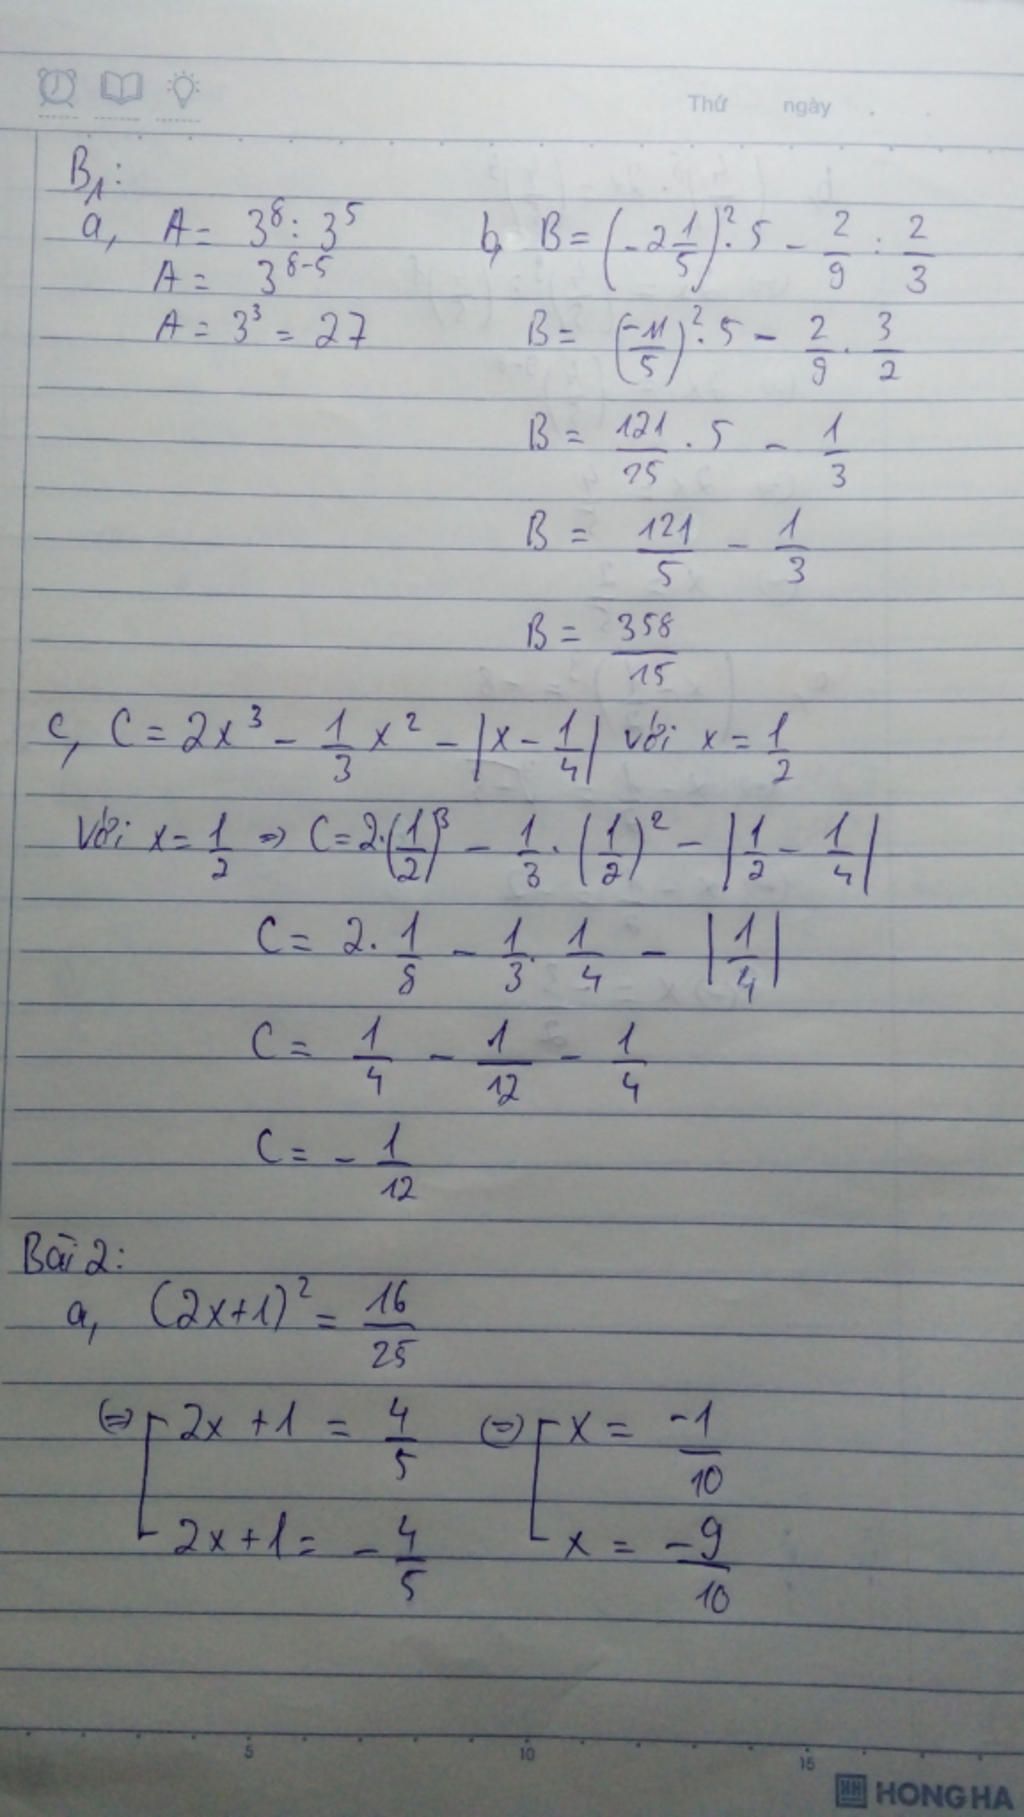 Thứ ngày
B1:
a, A = 3^8 : 3^5
A = 3^(8-5)
A = 3^3 = 27
b, B = (-2 1/5)^2 . 5 - 2/9 : 2/3
B = (-11/5)^2 . 5 - 2/9 . 3/2
B = 121/25 . 5 - 1/3
B = 121/5 - 1/3
B = 358/15
c, C = 2x^3 - 1/3 x^2 - |x - 1/4| với x = 1/2
Với x = 1/2 => C = 2.(1/2)^3 - 1/3 . (1/2)^2 - |1/2 - 1/4|
C = 2. 1/8 - 1/3 . 1/4 - |1/4|
C = 1/4 - 1/12 - 1/4
C = - 1/12
Bài 2:
a, (2x+1)^2 = 16/25
(=> [ 2x + 1 = 4/5 (=) [ x = -1/10
2x + 1 = - 4/5 x = -9/10
5 10 15
HONG HA